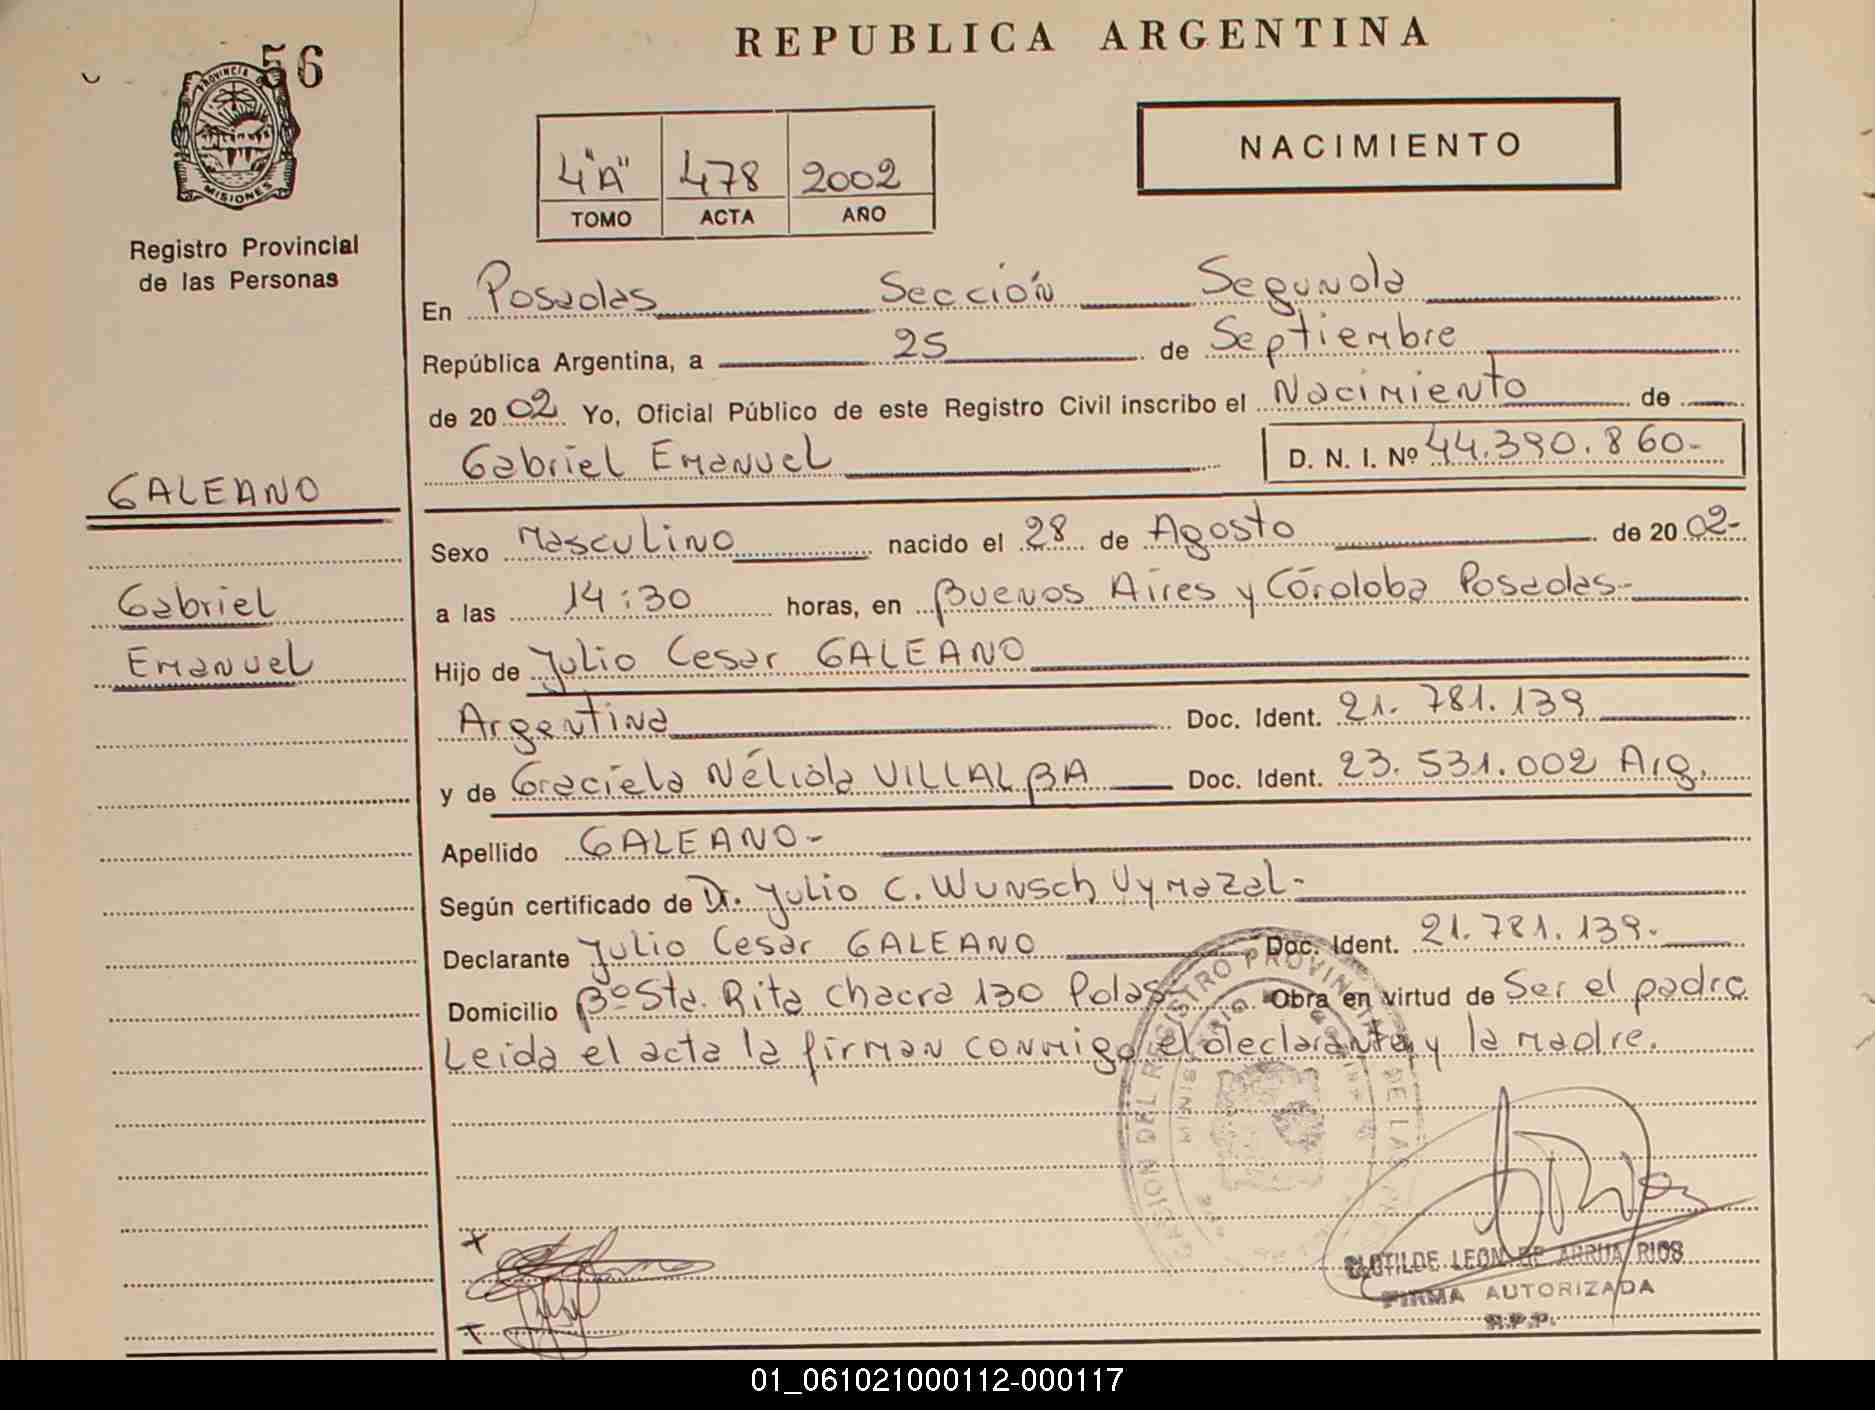 REPUBLICA ARGENTINA
56
PROVINCIA DE
MISIONES
Registro Provincial
de las Personas
4"A" 478 2002
TOMO ACTA AÑO
NACIMIENTO
En Posadas Sección Segunda
República Argentina, a 25 de Septiembre
de 2002 Yo, Oficial Público de este Registro Civil inscribo el Nacimiento de
Gabriel Emanuel D. N. I. Nº 44.390.860-
GALEANO
Gabriel
Emanuel
Sexo Masculino nacido el 28 de Agosto de 2002-
a las 14:30 horas, en Buenos Aires y Córdoba Posadas-
Hijo de Julio Cesar GALEANO
Argentina Doc. Ident. 21.781.139
y de Graciela Nélida VILLALBA Doc. Ident. 23.531.002 Arg.
Apellido GALEANO-
Según certificado de Dr. Julio C. Wunsch Vymazal-
Declarante Julio Cesar GALEANO Doc. Ident. 21.781.139.
Domicilio Bº Sta. Rita chacra 130 Pdas- Obra en virtud de Ser el padre
Leida el acta la firman conmigo el declarante y la madre.
CLOTILDE LEON DE ARRUA RIOS
FIRMA AUTORIZADA
R.P.P.
01_061021000112-000117